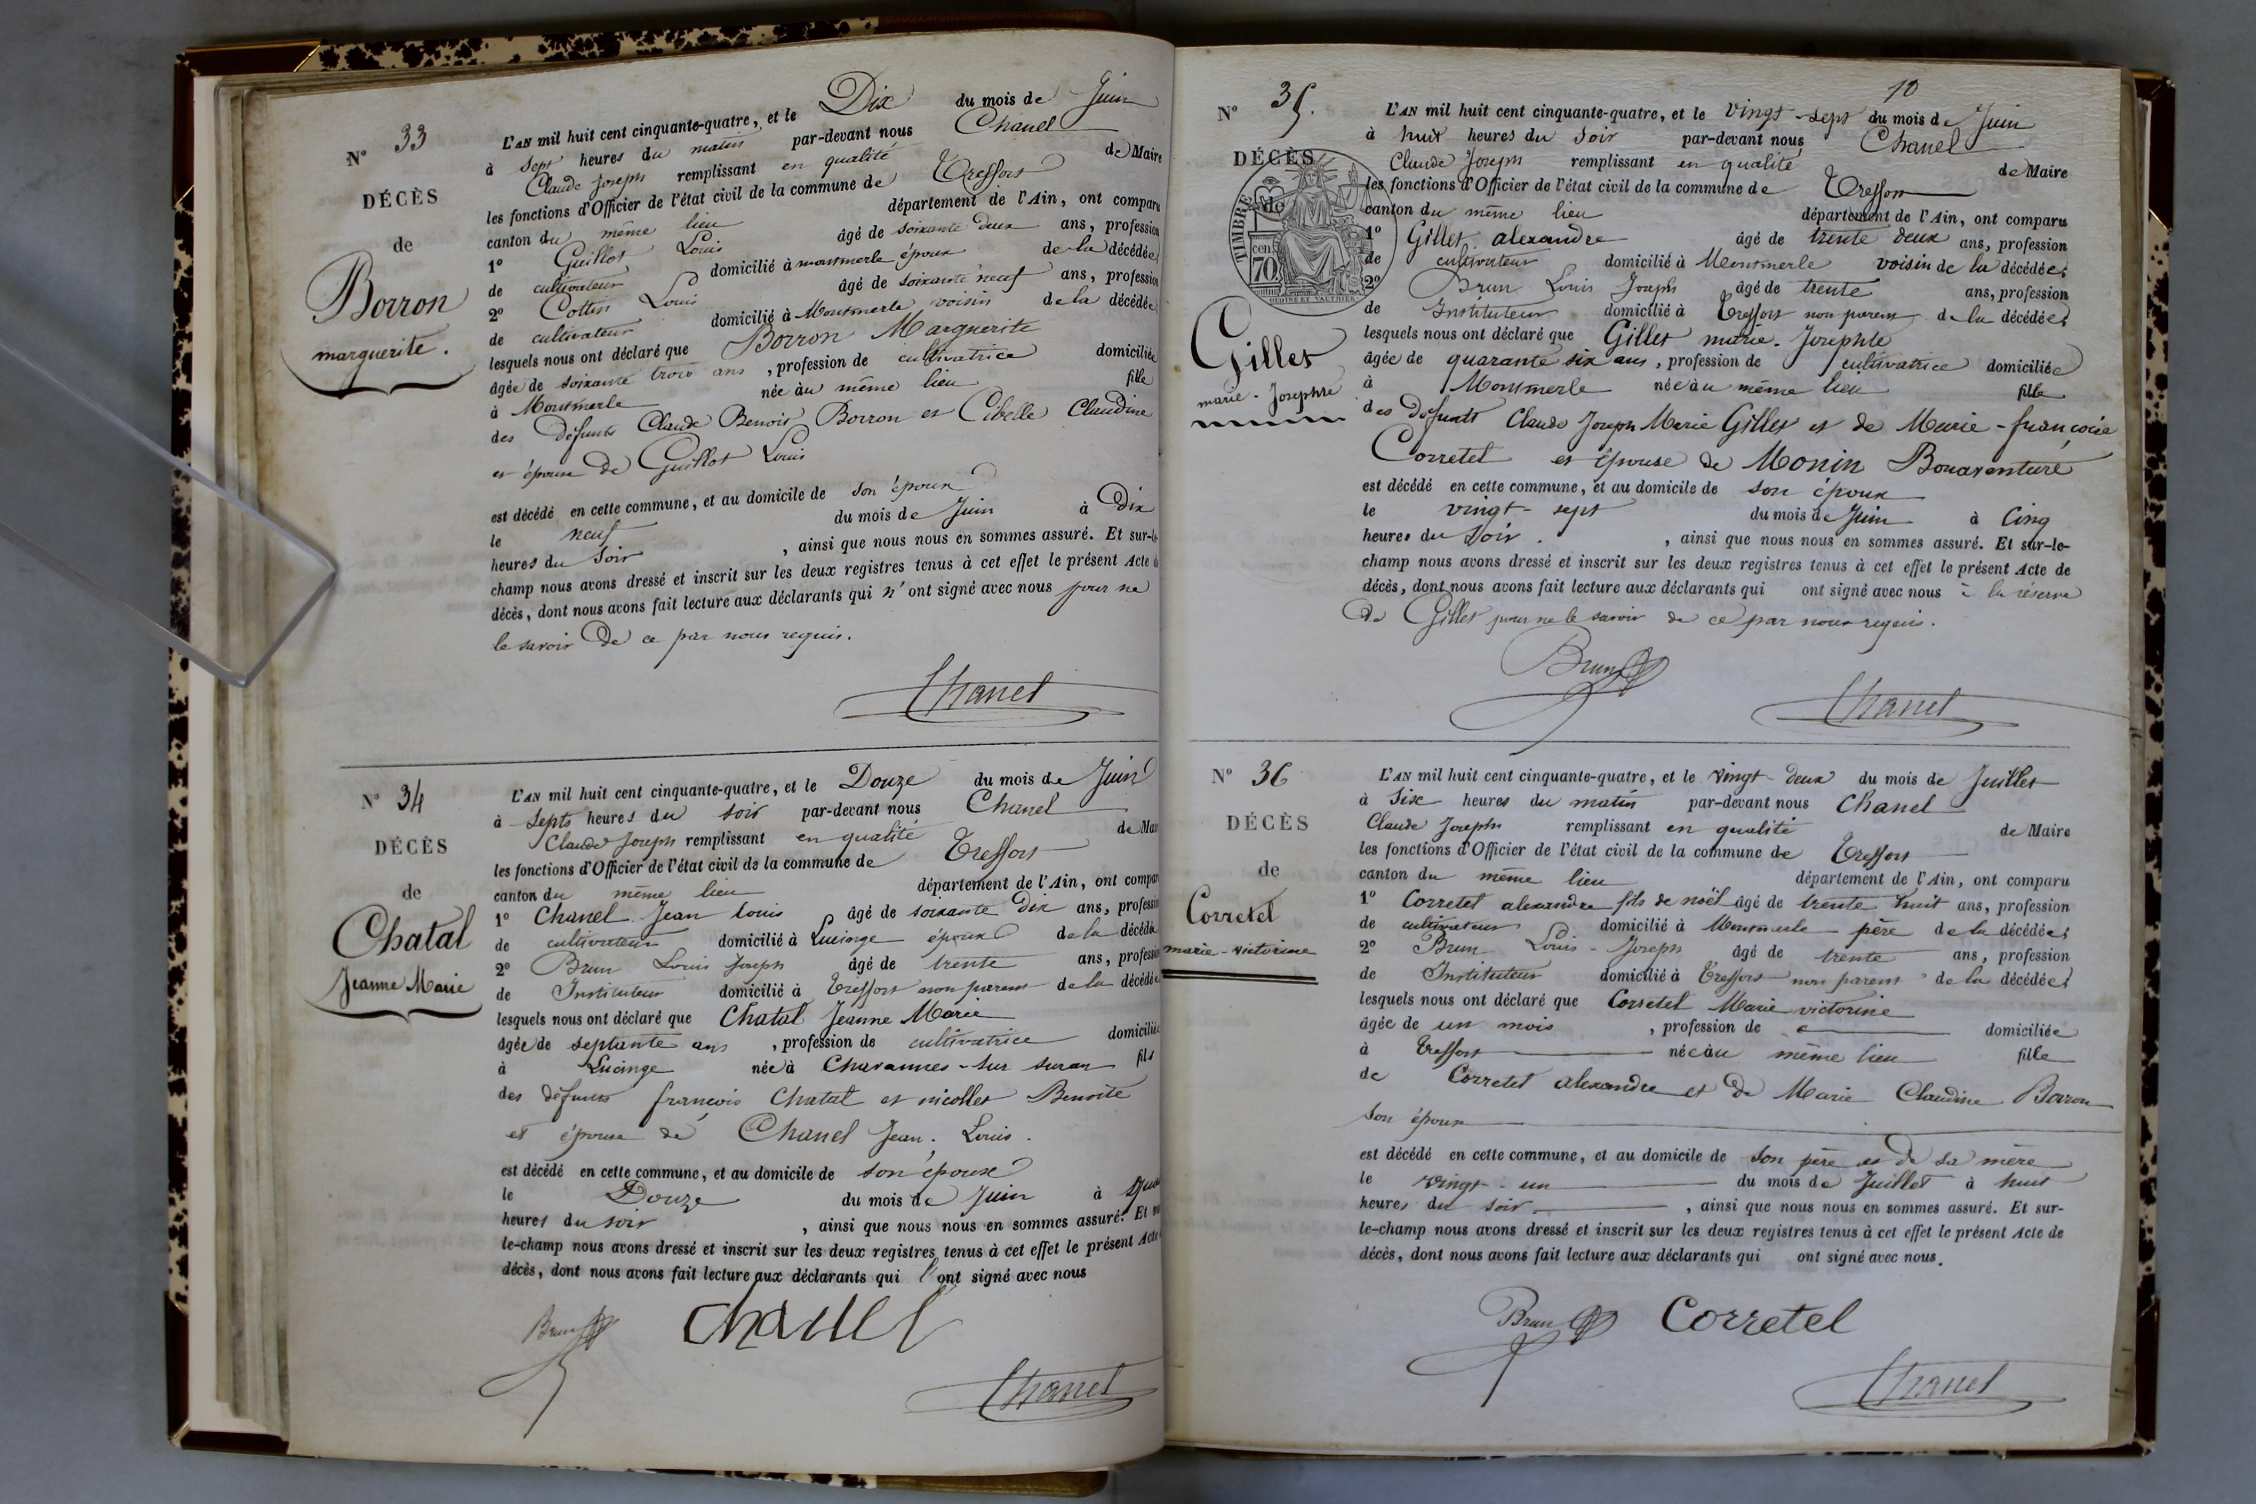 N° 33
DÉCÈS
de
Borron
marguerite.
L'AN mil huit cent cinquante-quatre, et le Dix du mois de Juin
à Sept heures du matin par-devant nous Chanel
Claude Joseph remplissant en qualité de Maire
les fonctions d'Officier de l'état civil de la commune de Treffort
canton du même lieu département de l'Ain, ont comparu
1° Guillot Louis âgé de soixante deux ans, profession
de cultivateur domicilié à montmerle époux de la décédée
2° Cottin Louis âgé de soixante neuf ans, profession
de cultivateur domicilié à Montmerle voisin de la décédée
lesquels nous ont déclaré que Borron Marguerite
âgée de soixante trois ans, profession de cultivatrice domiciliée
à Montmerle née au même lieu fille
des défunts Claude Benoit Borron et Cibelle Claudine
et épouse de Guillot Louis
est décédé en cette commune, et au domicile de son époux
le neuf du mois de Juin à Dix
heures du Soir, ainsi que nous nous en sommes assuré. Et sur-le-
champ nous avons dressé et inscrit sur les deux registres tenus à cet effet le présent Acte de
décès, dont nous avons fait lecture aux déclarants qui n'ont signé avec nous pour ne
le savoir De ce par nous requis.
Chanel
N° 34
DÉCÈS
de
Chatal
Jeanne Marie
L'AN mil huit cent cinquante-quatre, et le Douze du mois de Juin
à Septs heures du soir par-devant nous Chanel
Claude Joseph remplissant en qualité de Mai
les fonctions d'Officier de l'état civil de la commune de Treffort
canton du même lieu département de l'Ain, ont compar
1° Chanel Jean Louis âgé de soixante Dix ans, profession
de cultivateur domicilié à Lucinge époux de la décédée
2° Brun Louis Joseph âgé de trente ans, profession
de Instituteur domicilié à Treffort non parent de la décédée
lesquels nous ont déclaré que Chatal Jeanne Marie
âgée de septante ans, profession de cultivatrice domiciliée
à Lucinge née à Chavannes-sur suran fils
des défunts françois Chatal et nicollet Benoite
et épouse de Chanel Jean. Louis.
est décédé en cette commune, et au domicile de son époux
le Douze du mois de Juin à
heures du soir, ainsi que nous nous en sommes assuré. Et sur
le-champ nous avons dressé et inscrit sur les deux registres tenus à cet effet le présent Acte
décès, dont nous avons fait lecture aux déclarants qui l'ont signé avec nous
Brun Chanel
Chanel
10
N° 35.
DÉCÈS
de
TIMBRE
cen 70
Gillet
marie-Josephte
L'AN mil huit cent cinquante-quatre, et le vingt-sept du mois de Juin
à huit heures du Soir par-devant nous Chanel
Claude Joseph remplissant en qualité de Maire
les fonctions d'Officier de l'état civil de la commune de Treffort
canton du même lieu département de l'Ain, ont comparu
1° Gillet alexandre âgé de trente deux ans, profession
de cultivateur domicilié à Montmerle voisin de la décédée;
2° Brun Louis Joseph âgé de trente ans, profession
de Instituteur domicilié à Treffort non parent de la décédée;
lesquels nous ont déclaré que Gillet marie-Josephte
âgée de quarante six ans, profession de cultivatrice domiciliée
à Montmerle née au même lieu fille
des Défunts Claude Joseph Marie Gillet et de Marie-françoise
Corretel et épouse de Monin Bonaventure
est décédé en cette commune, et au domicile de son époux
le vingt-sept du mois de Juin à Cinq
heures du Soir., ainsi que nous nous en sommes assuré. Et sur-le-
champ nous avons dressé et inscrit sur les deux registres tenus à cet effet le présent Acte de
décès, dont nous avons fait lecture aux déclarants qui ont signé avec nous à la réserve
De Gillet pour ne le savoir de ce par nous requis.
Brun
Chanel
N° 36
DÉCÈS
de
Corretel
marie-victorine
L'AN mil huit cent cinquante-quatre, et le vingt-deux du mois de Juillet
à Six heures du matin par-devant nous Chanel
Claude Joseph remplissant en qualité de Maire
les fonctions d'Officier de l'état civil de la commune de Treffort
canton du même lieu département de l'Ain, ont comparu
1° Corretel alexandre fils de noël âgé de trente huit ans, profession
de cultivateur domicilié à Montmerle père de la décédée;
2° Brun Louis-Joseph âgé de trente ans, profession
de Instituteur domicilié à Treffort non parent de la décédée;
lesquels nous ont déclaré que Corretel Marie victorine
âgée de un mois, profession de domiciliée
à Treffort née au même lieu fille
de Corretel alexandre et de Marie Claudine Borron
son époux
est décédé en cette commune, et au domicile de son père et de sa mère
le vingt-un du mois de Juillet à huit
heures du soir, ainsi que nous nous en sommes assuré. Et sur-
le-champ nous avons dressé et inscrit sur les deux registres tenus à cet effet le présent Acte de
décès, dont nous avons fait lecture aux déclarants qui ont signé avec nous.
Brun Corretel
Chanel